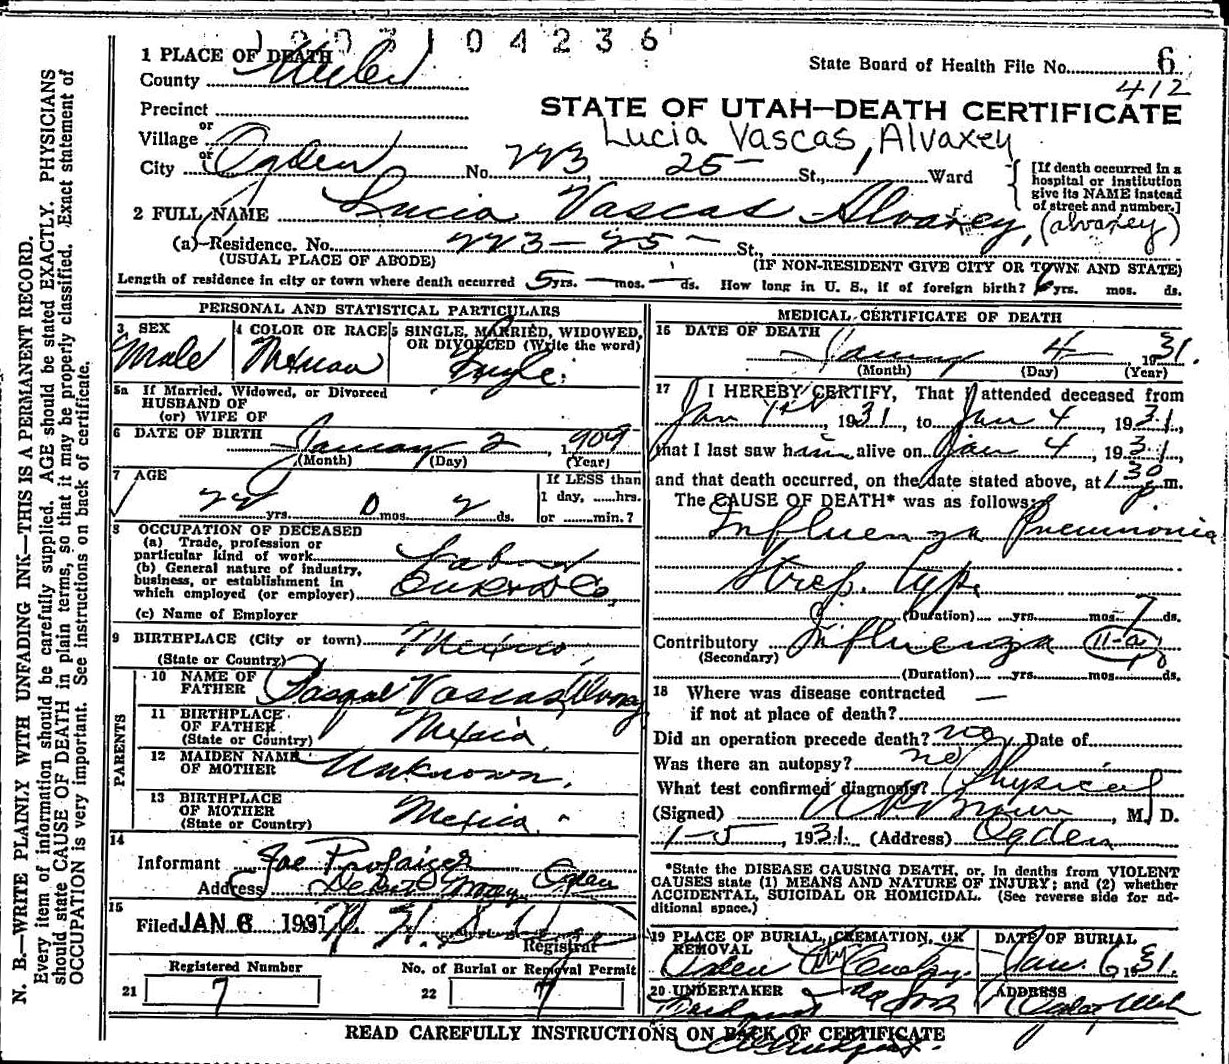 193104236
1 PLACE OF DEATH
County Weber
State Board of Health File No. 6
412
Precinct
STATE OF UTAH—DEATH CERTIFICATE
or
Village
Lucia Vascas, Alvaxey
or
City Ogden No. 223, 25 St., 1 Ward
[If death occurred in a hospital or institution give its NAME instead of street and number.]
2 FULL NAME Lucia Vascas Alvaxey, (alvaxey)
(a) Residence. No. 223-25 St.,
(USUAL PLACE OF ABODE) (IF NON-RESIDENT GIVE CITY OR TOWN AND STATE)
Length of residence in city or town where death occurred 5 yrs. — mos. — ds. How long in U. S., if of foreign birth? 6 yrs. mos. ds.
PERSONAL AND STATISTICAL PARTICULARS
3 SEX
Male
4 COLOR OR RACE
5 SINGLE, MARRIED, WIDOWED, OR DIVORCED (Write the word)
Single
5a If Married, Widowed, or Divorced
HUSBAND OF
(or) WIFE OF
6 DATE OF BIRTH January 2, 1909
(Month) (Day) (Year)
7 AGE
22 yrs. 0 mos. 2 ds.
If LESS than
1 day, ......hrs.
or ........min.?
8 OCCUPATION OF DECEASED
(a) Trade, profession or
particular kind of work Labor
(b) General nature of industry,
business, or establishment in
which employed (or employer)
(c) Name of Employer
9 BIRTHPLACE (City or town) Mexico,
(State or Country)
PARENTS
10 NAME OF
FATHER Pasqual Vascas
11 BIRTHPLACE
OF FATHER Mexico
(State or Country)
12 MAIDEN NAME
OF MOTHER Unknown.
13 BIRTHPLACE
OF MOTHER Mexico.
(State or Country)
14
Informant Joe
Address Ogden
15
Filed JAN 6 1931
Registrar
Registered Number
21 7
No. of Burial or Removal Permit
22 7
MEDICAL CERTIFICATE OF DEATH
16 DATE OF DEATH
January 4 1931.
(Month) (Day) (Year)
17 I HEREBY CERTIFY, That I attended deceased from
Jan 1st, 1931, to Jan 4, 1931,
that I last saw him alive on Jan 4, 1931
and that death occurred, on the date stated above, at 1:30 p. m.
The CAUSE OF DEATH* was as follows:
Influenza Pneumonia
Strep. type
(Duration) yrs. mos. 7 ds.
Contributory Influenza 11-a
(Secondary)
(Duration) yrs. mos. ds.
18 Where was disease contracted —
if not at place of death?
Did an operation precede death? no Date of
Was there an autopsy? no
What test confirmed diagnosis? Physical
(Signed) Brown, M. D.
1-5, 1931. (Address) Ogden
*State the DISEASE CAUSING DEATH, or, in deaths from VIOLENT
CAUSES state (1) MEANS AND NATURE OF INJURY; and (2) whether
ACCIDENTAL, SUICIDAL OR HOMICIDAL. (See reverse side for ad-
ditional space.)
19 PLACE OF BURIAL, CREMATION, OR
REMOVAL
Ogden City Cemetery.
DATE OF BURIAL
Jan. 6 1931.
20 UNDERTAKER
ADDRESS
Ogden, Utah
READ CAREFULLY INSTRUCTIONS ON BACK OF CERTIFICATE
N. B.—WRITE PLAINLY WITH UNFADING INK—THIS IS A PERMANENT RECORD.
Every item of information should be carefully supplied. AGE should be stated EXACTLY. PHYSICIANS
should state CAUSE OF DEATH in plain terms, so that it may be properly classified. Exact statement of
OCCUPATION is very important. See instructions on back of certificate.